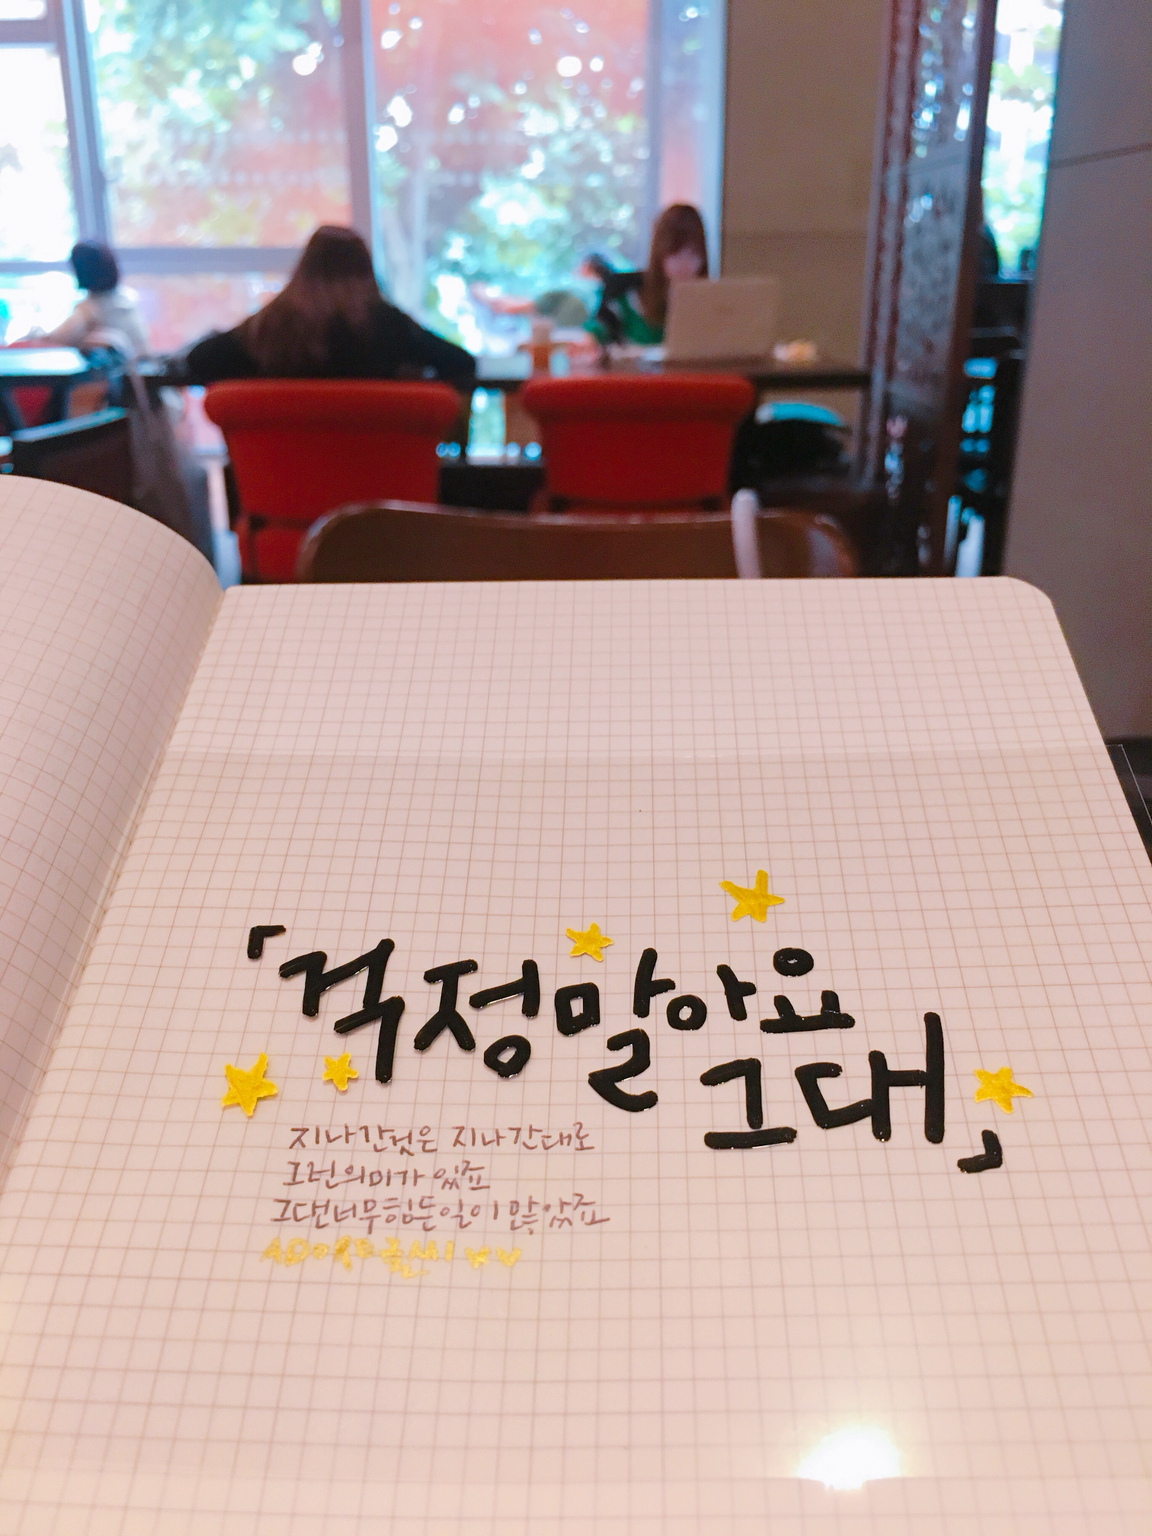 「걱정말아요
그대」
지나간것은 지나간대로
그런의미가 있죠
그댄너무힘든일이 많았죠